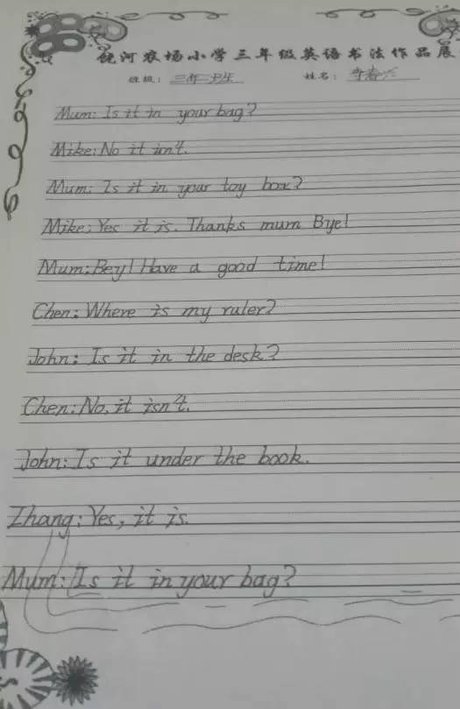 饶河农场小学三年级英语书法作品展
班级： 三年 姓名： 春
Mum: Is it in your bag?
Mike: No it isn't.
Mum: Is it in your toy box?
Mike: Yes it is. Thanks mum Bye!
Mum: Bey! Have a good time!
Chen: Where is my ruler?
John: Is it in the desk?
Chen: No, it isn't.
John: Is it under the book.
Zhang: Yes, it is.
Mum: Is it in your bag?